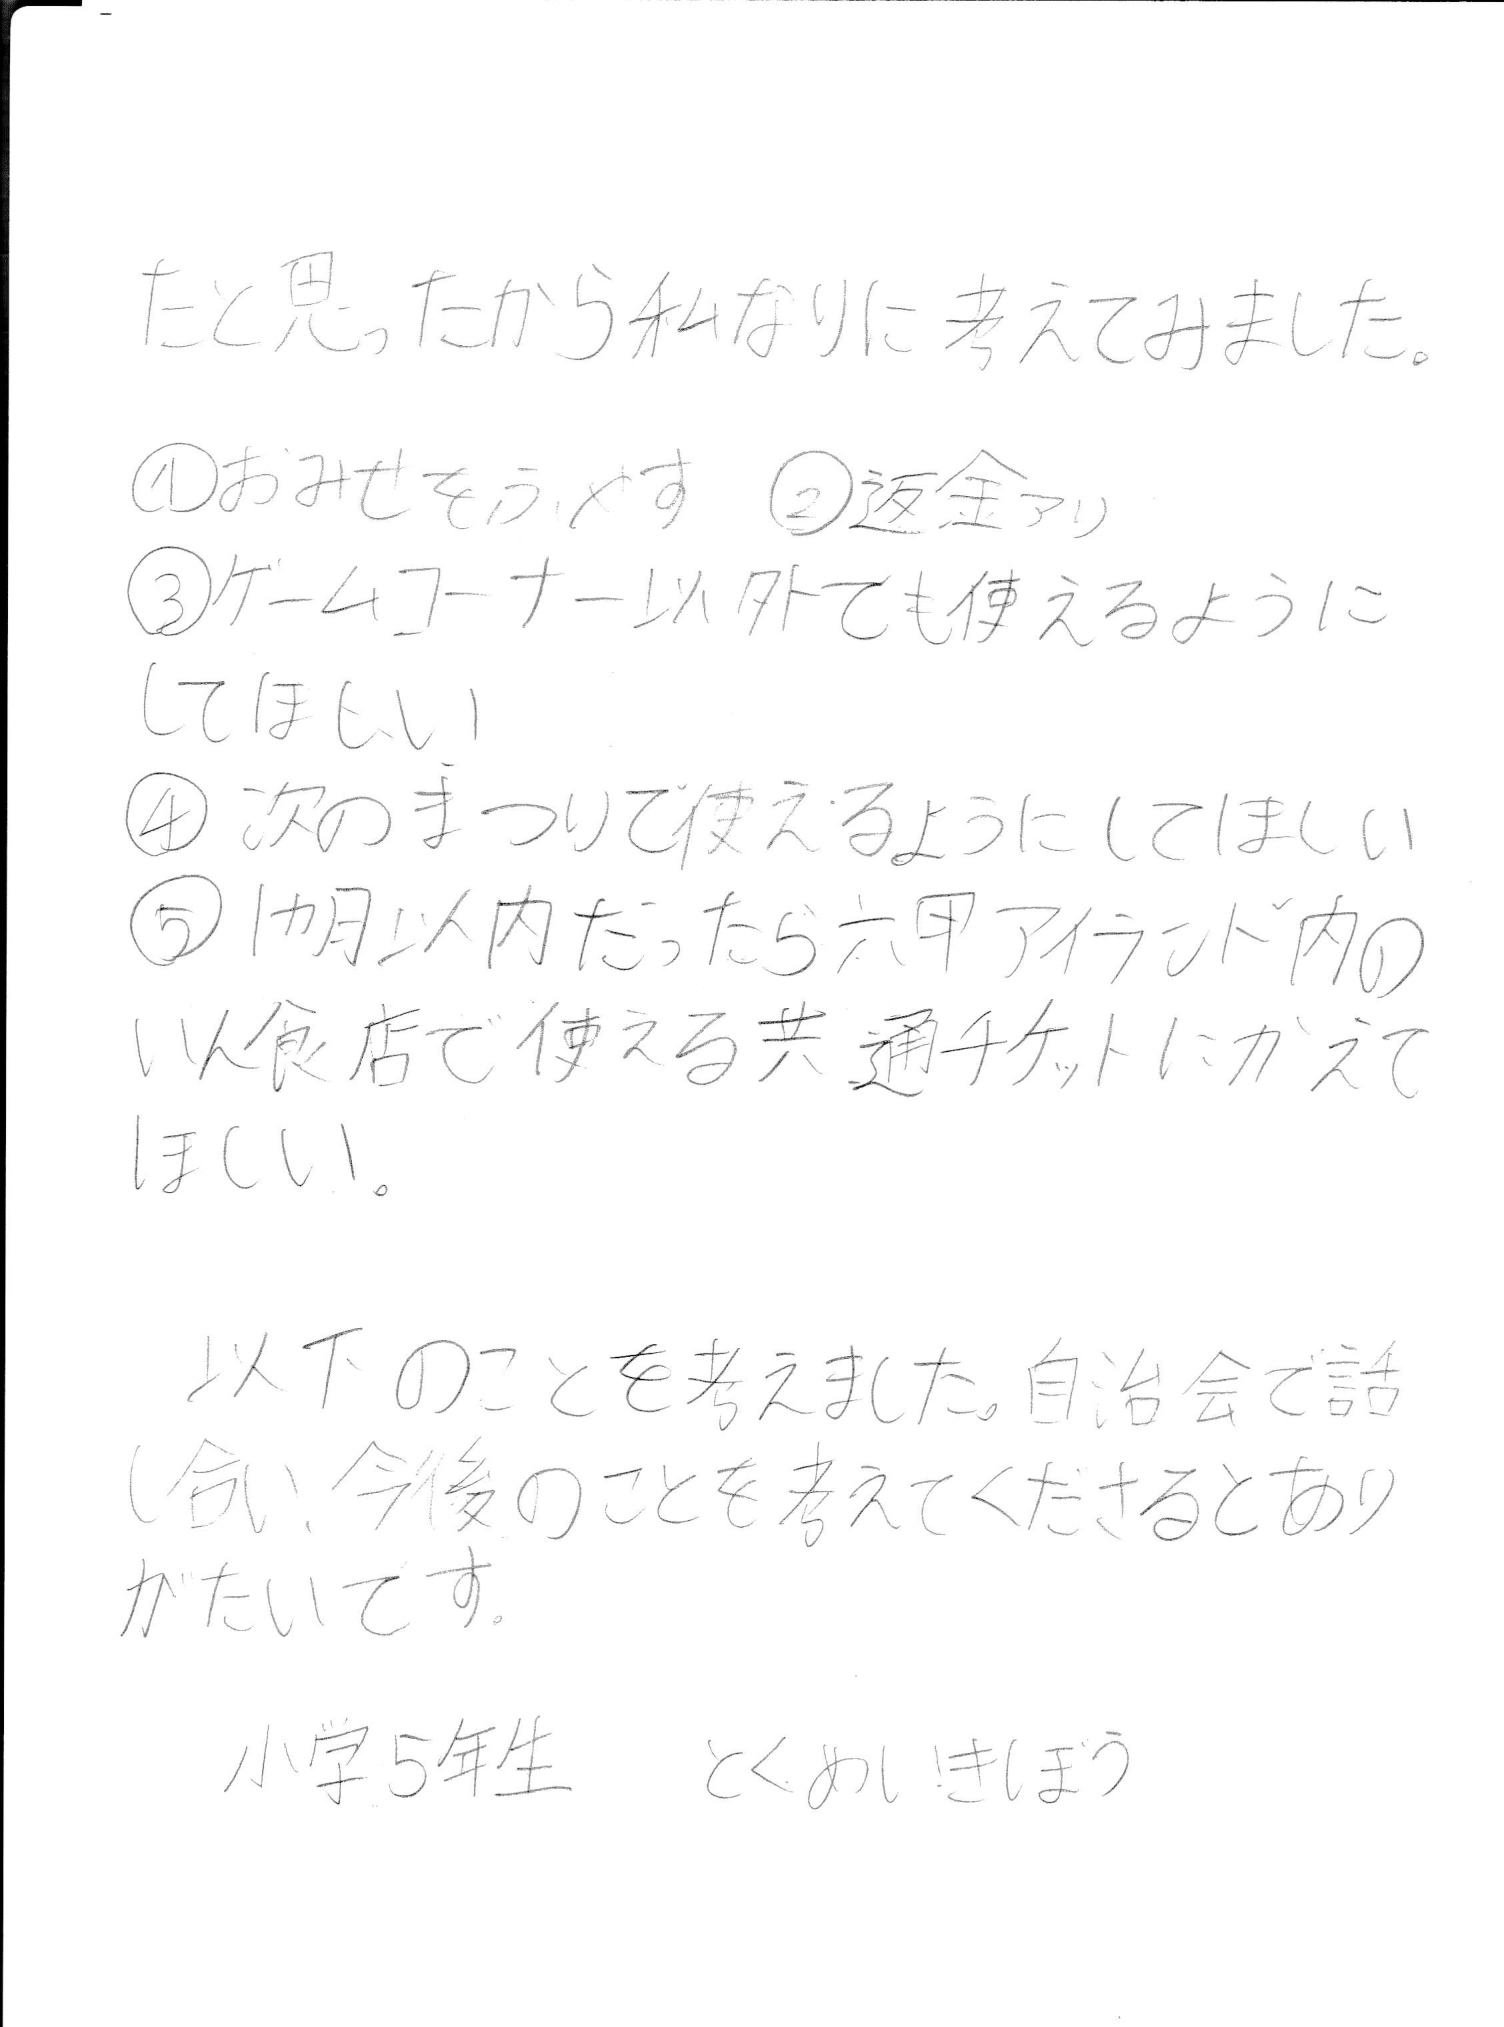 たと思ったから私なりに考えてみました。
①おみせをふやす ②返金アリ
③ゲームコーナー以外でも使えるように
してほしい
④次のまつりで使えるようにしてほしい
⑤1カ月以内だったら六甲アイランド内の
いん食店で使える共通チケットにかえて
ほしい。
以下のことを考えました。自治会で話
し合い、今後のことを考えてくださるとあり
がたいです。
小学5年生 とくめいきぼう